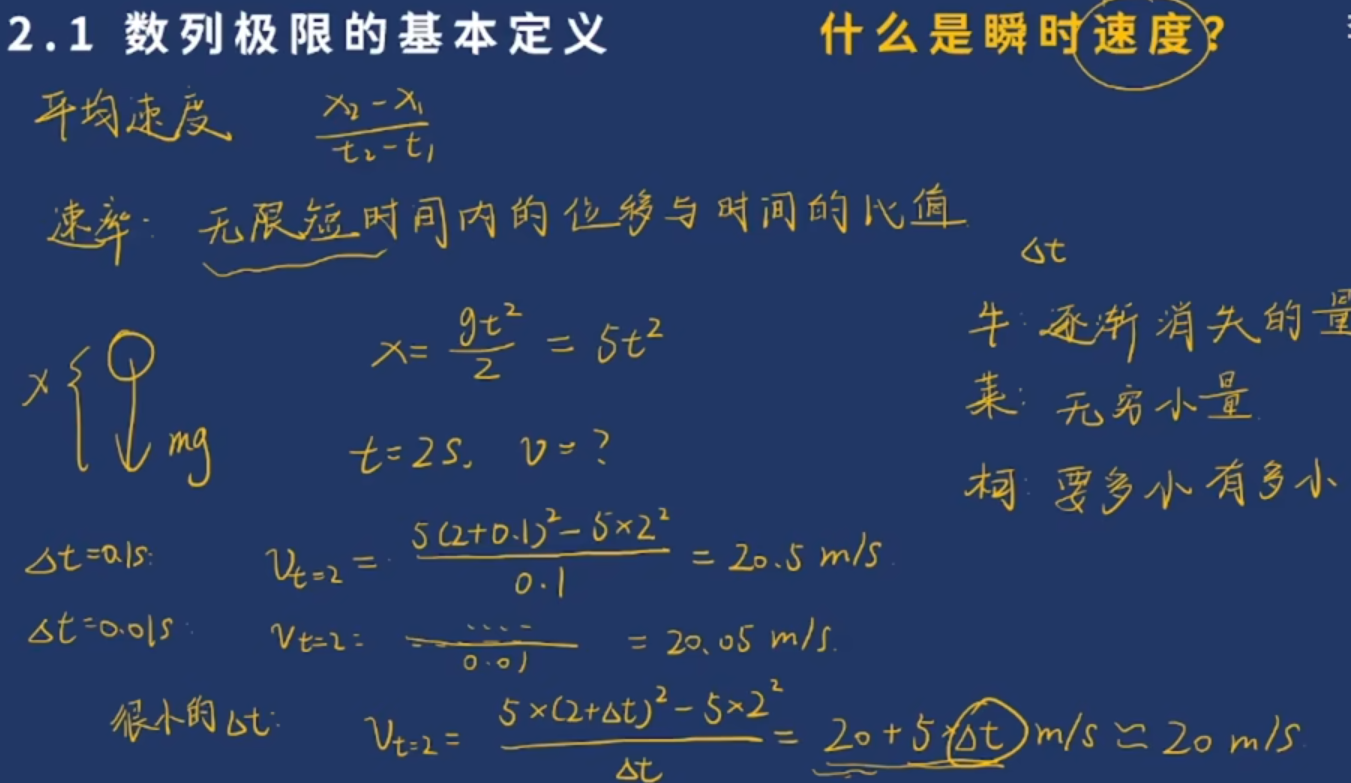 2.1 数列极限的基本定义
什么是瞬时速度?
平均速度 (x₂-x₁)/(t₂-t₁)
速率: 无限短时间内的位移与时间的比值
Δt
牛: 逐渐消失的量
莱: 无穷小量
柯: 要多小有多小
x mg
x = gt²/2 = 5t²
t=2s, v=?
Δt=0.1s: V_{t=2} = (5(2+0.1)²-5×2²)/0.1 = 20.5 m/s
Δt=0.01s: V_{t=2} = ..../0.01 = 20.05 m/s.
很小的Δt: V_{t=2} = (5×(2+Δt)²-5×2²)/Δt = 20+5×Δt m/s ≃ 20 m/s